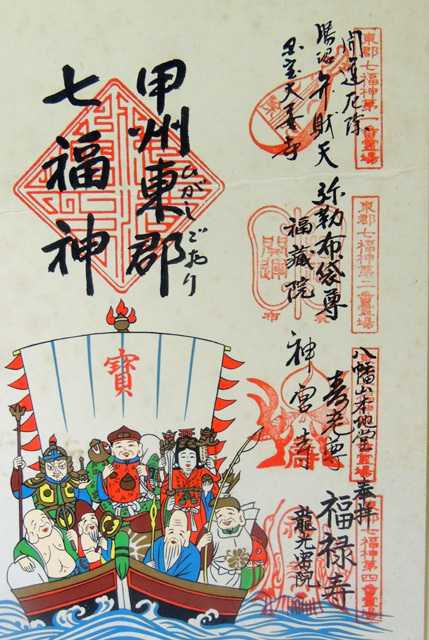 甲州東郡
ひがしごおり
七福神
寶
東郡七福神第一番霊場
開運厄除
勝沼弁財天
国宝大善寺
東郡七福神第二番霊場
弥勒布袋尊
福蔵院
開運
八幡山本地堂
寿老尊
神宮寺
奉拝
七福神第四番霊場
福禄寿